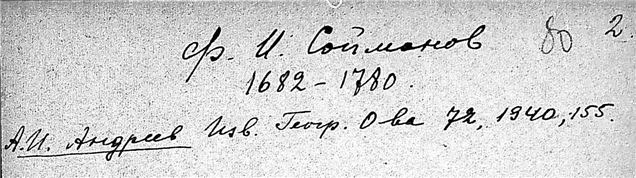 Ф. И. Соймонов 80 2.
1682 – 1780.
А.И. Андреев Изв. Геогр. О-ва 72, 1940, 155.